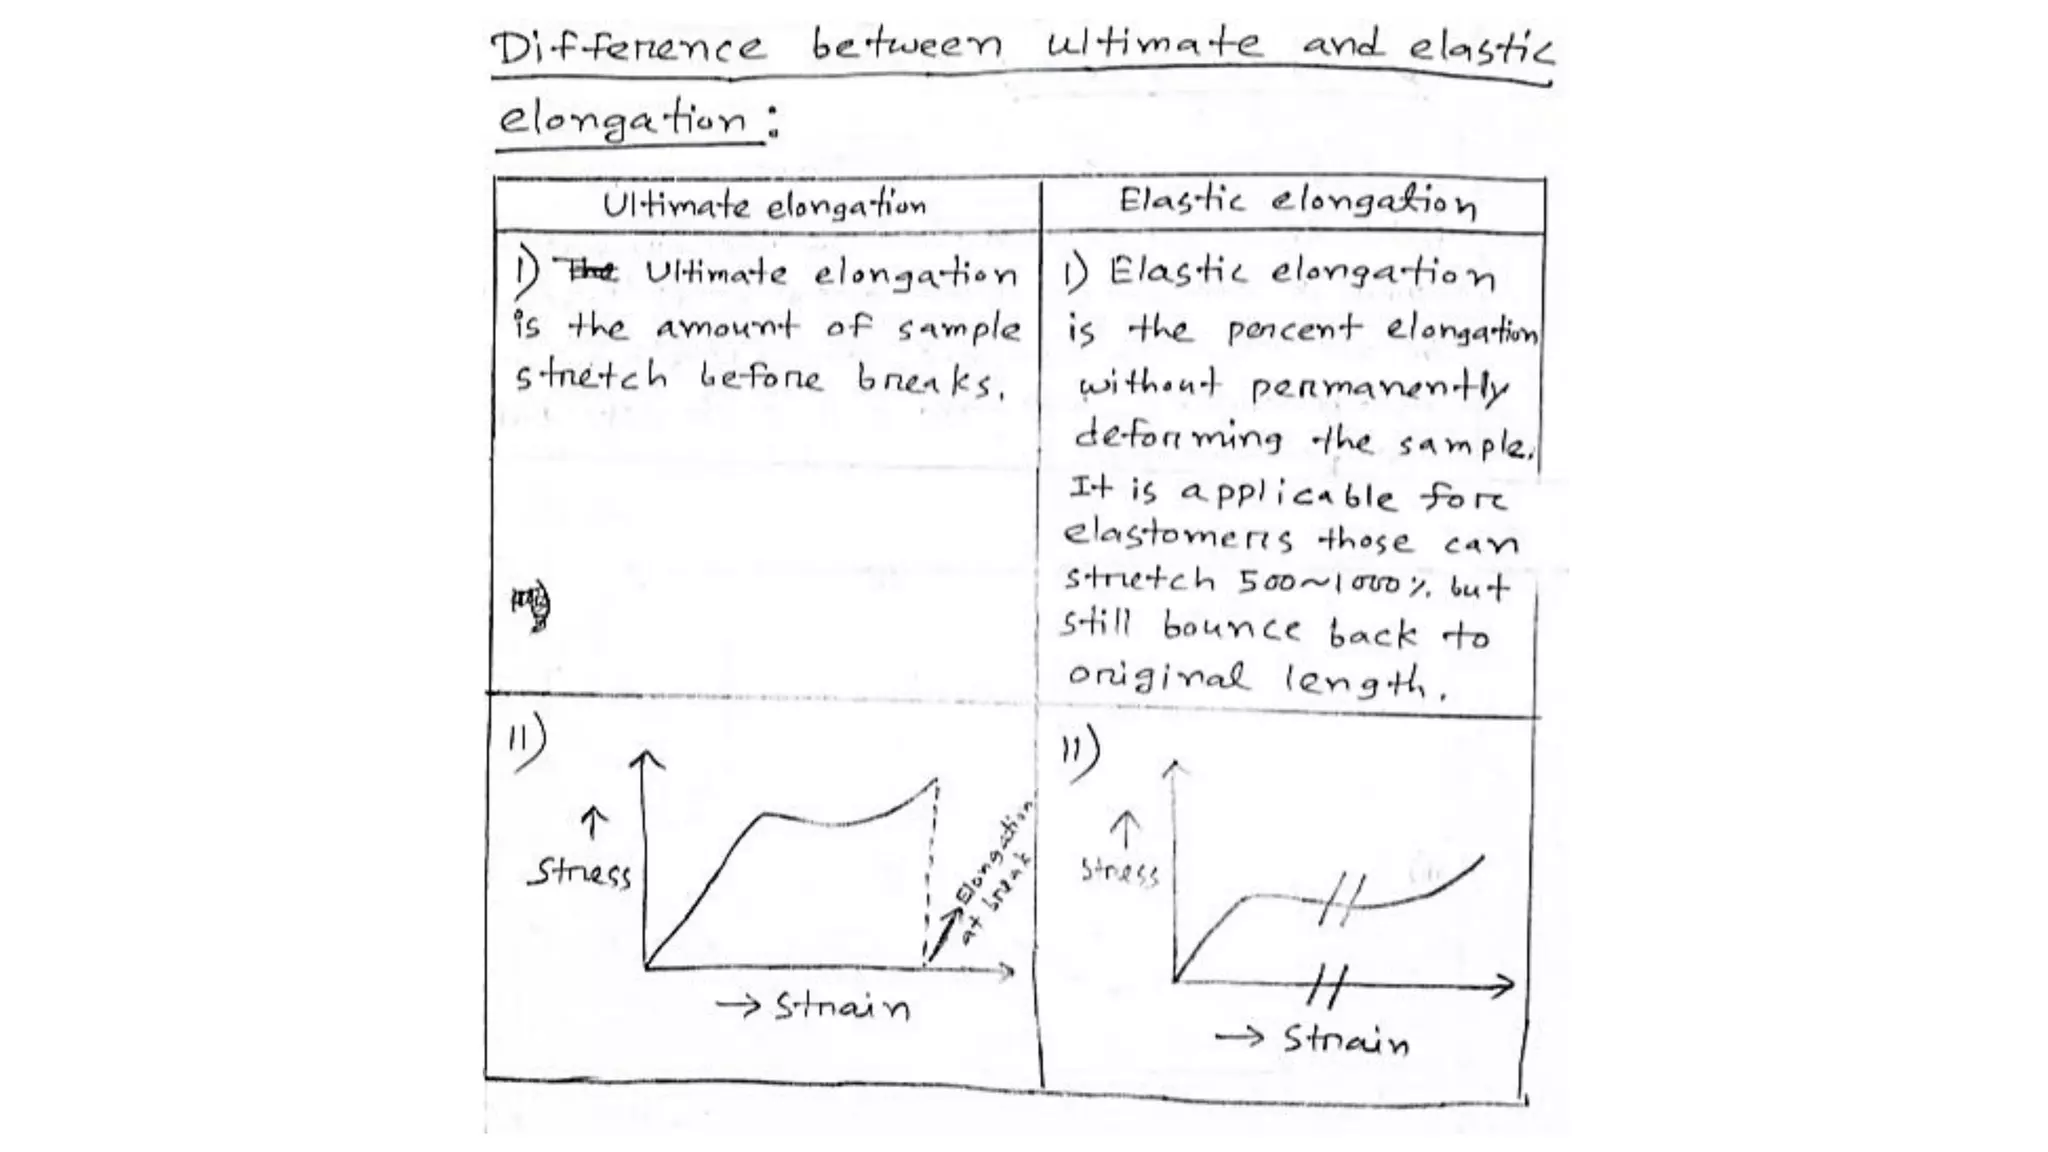 Difference between ultimate and elastic
elongation:
Ultimate elongation
Elastic elongation
I) The Ultimate elongation
is the amount of sample
stretch before breaks.
I) Elastic elongation
is the percent elongation
without permanently
deforming the sample.
It is applicable for
elastomers those can
stretch 500~1000% but
still bounce back to
original length.
II)
↑
Stress
→ Strain
Elongation
at break
II)
↑
Stress
→ Strain